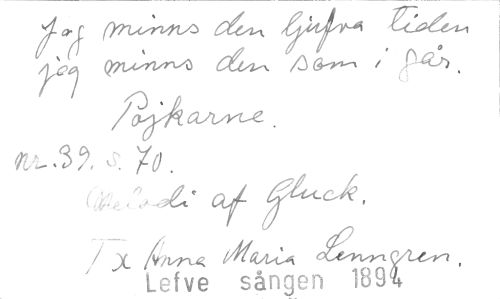 Jag minns den ljufva tiden
jag minns den som i går.
Pojkarne.
nr. 39. s. 70.
Melodi af Gluck.
Tx Anna Maria Lenngren.
Lefve sången 1894